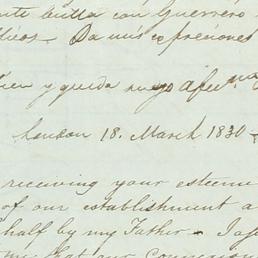 con Guerrero
Da mis expresiones
y queda suyo afmo
London 18. March 1830 -
receiving your esteeme
of our establishment a
half by my Father - I
my that our